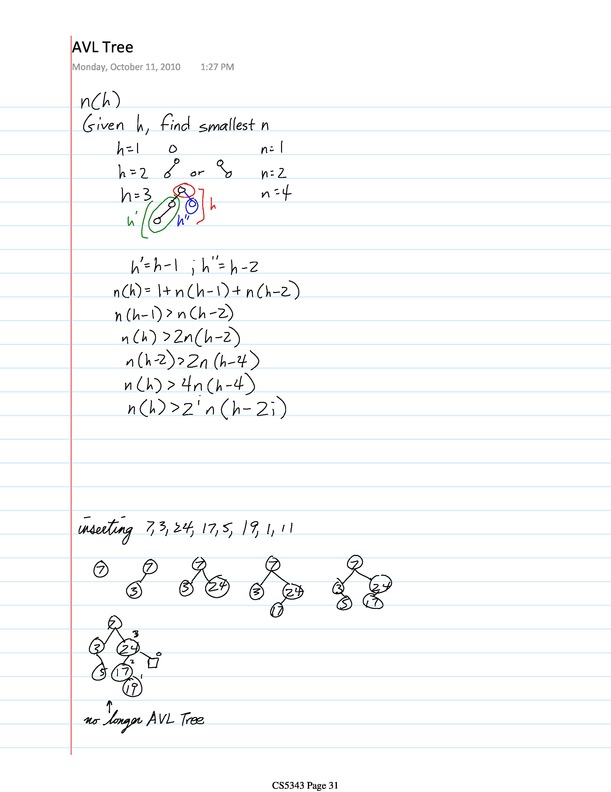 AVL Tree
Monday, October 11, 2010 1:27 PM
n(h)
Given h, find smallest n
h=1 n=1
h=2 or n=2
h=3 n=4
h' h'' h
h'=h-1 ; h''=h-2
n(h)=1+n(h-1)+n(h-2)
n(h-1)>n(h-2)
n(h)>2n(h-2)
n(h-2)>2n(h-4)
n(h)>4n(h-4)
n(h)>2^i n(h-2i)
inserting 7,3,24,17,5,19,1,11
7 7 7 7 7
3 3 24 3 24 3 24
17 5 17
7
3 24 3 0
5 17 2
19 1
no longer AVL Tree
CS5343 Page 31